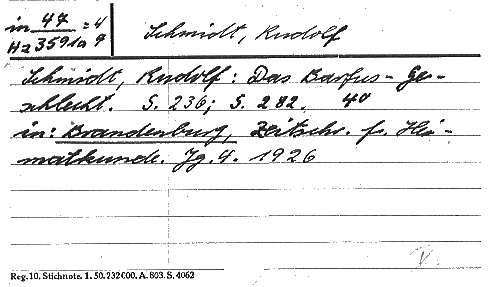 in 47 = 4
Hz 3591a 9
Schmidt, Rudolf
Schmidt, Rudolf: Das Barfus-Ge-
schlecht. S. 236; S. 282. 4°
in: Brandenburg, Zeitschr. f. Hei-
matkunde. Jg. 4. 1926
Reg. 10. Stichnote. 1. 50. 232000. A. 803. S. 4062